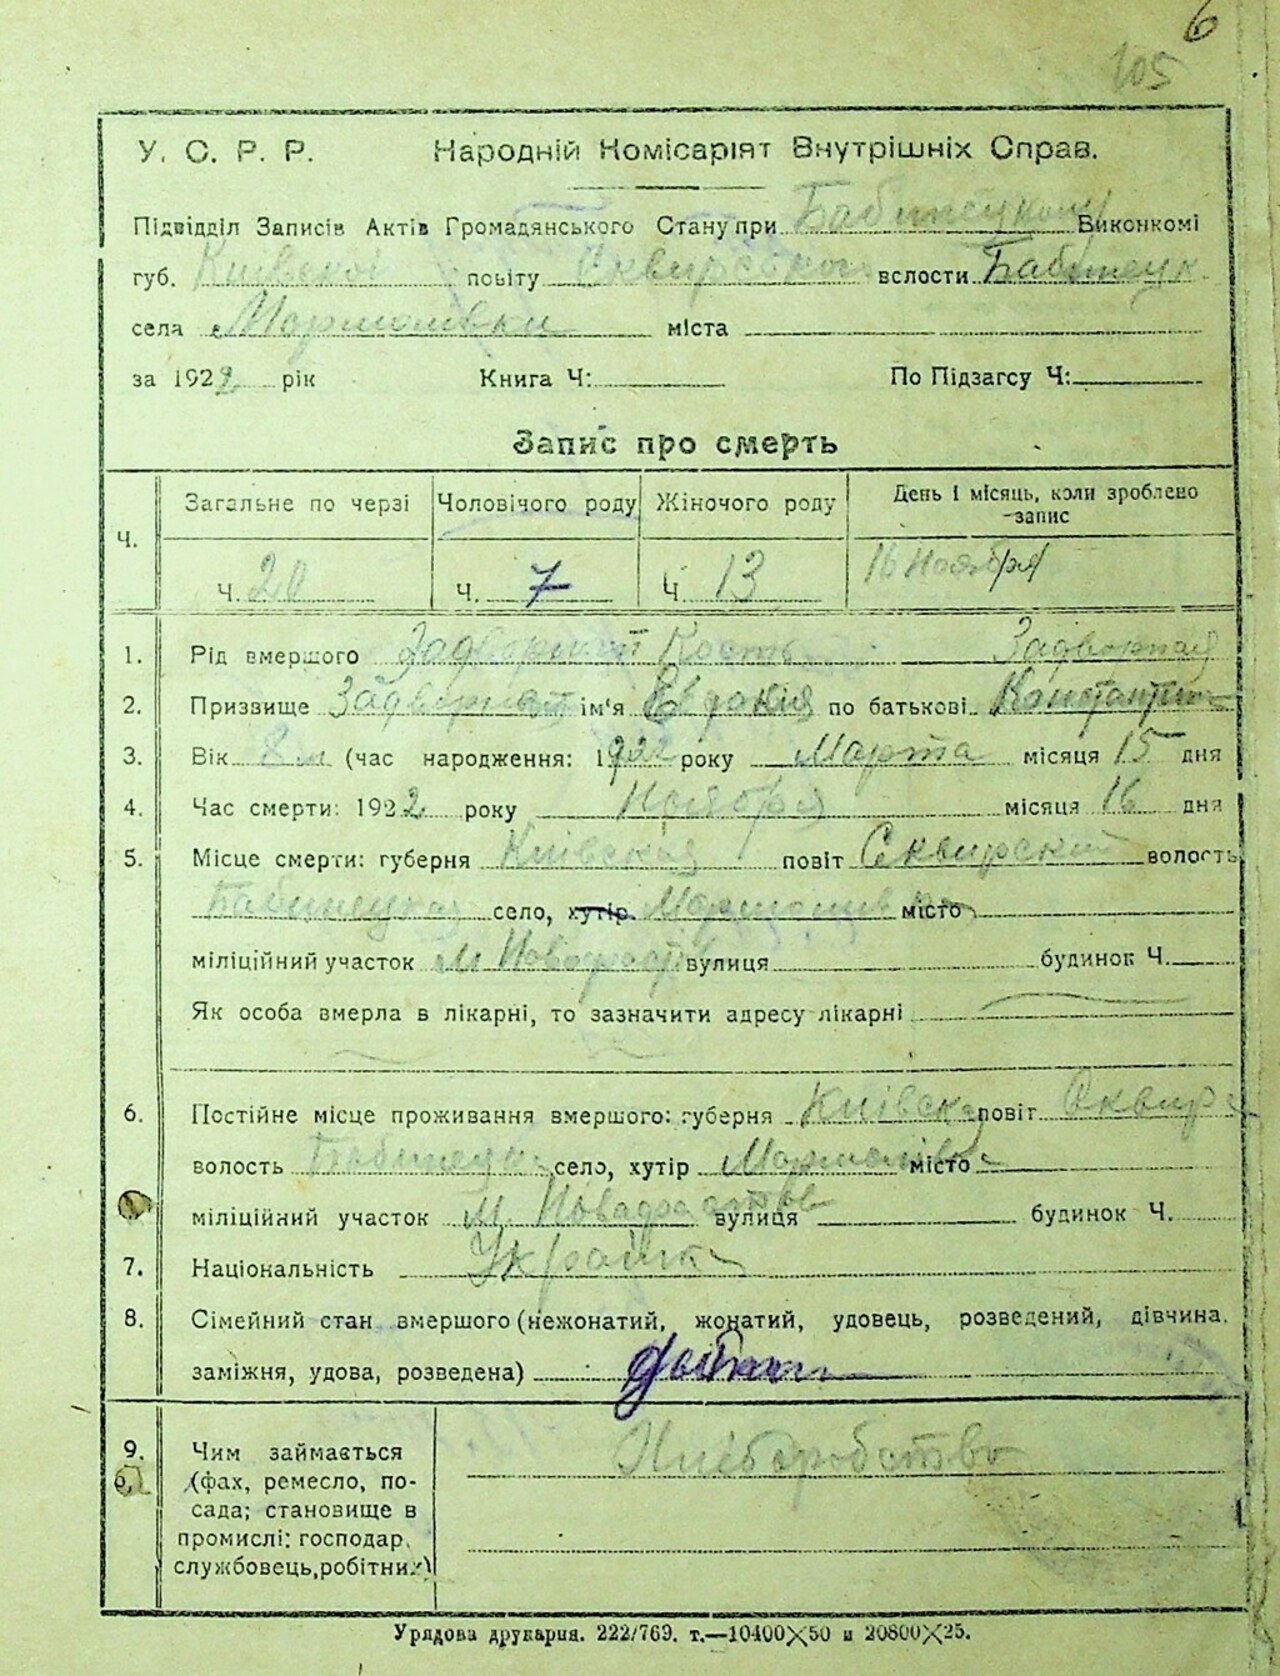 6
105
У. С. Р. Р. Народній Комісаріят Внутрішніх Справ.
Підвідділ Записів Актів Громадянського Стану при Бабинецкому Виконкомі
губ. Київской повіту Сквирсбкой вслости Бабинецк.
села Мормолівки міста
за 1922 рік Книга Ч: По Підзагсу Ч:
Запис про смерть
Загальне по черзі Чоловічого роду Жіночого роду День і місяць, коли зроблено
запис
Ч.
Ч. 20 Ч. 7 Ч 13 16 Ноября
1. Рід вмершого Задворний Кость Задворная
2. Призвище Задворная ім'я Євдокія по батькові Константин
3. Вік 8 м (час народження: 1922 року Марта місяця 15 дня
4. Час смерти: 1922 року Ноября місяця 16 дня
5. Місце смерти: губерня Київская повіт Сквирский волость
Бабинецкая село, хутір. Мормолівка місто
міліційний участок м вулиця будинок Ч.
Як особа вмерла в лікарні, то зазначити адресу лікарні
6. Постійне місце проживання вмершого: губерня Київска повіт Сквирс
волость Бабинецк село, хутір Мормолівка місто
міліційний участок м. вулиця будинок Ч.
7. Національність Українка
8. Сімейний стан вмершого (нежонатий, жонатий, удовець, розведений, дівчина.
заміжня, удова, розведена)
9. Чим займається Хліборобство
(фах, ремесло, по-
сада; становище в
промислі: господар.
службовець, робітник)
Урядова друкарня. 222/769. т.—10400X50 и 20800X25.